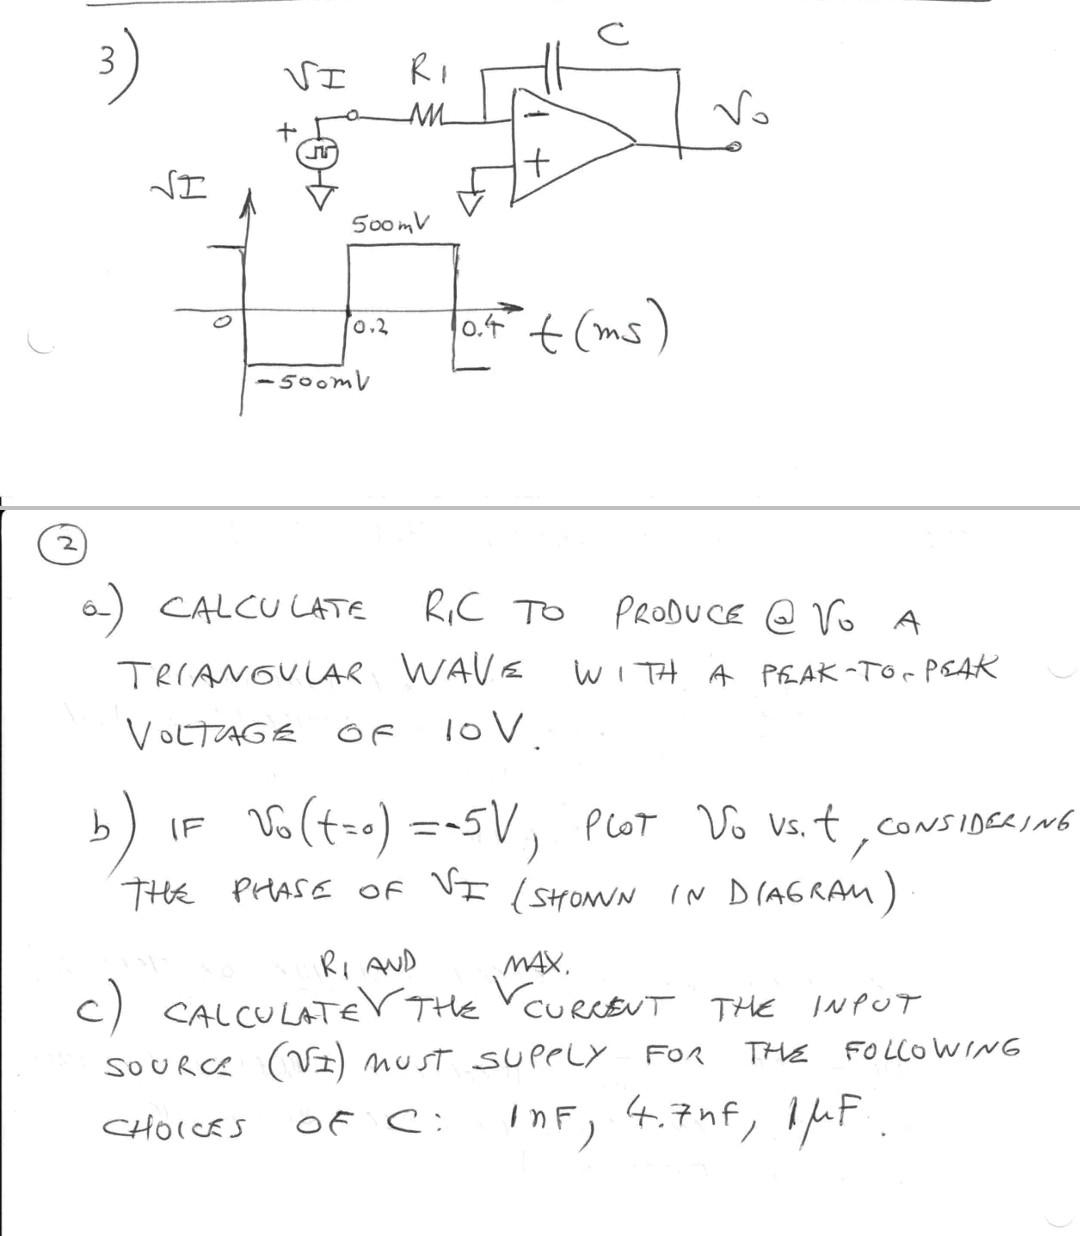 3)
C
VI
R1
Vo
−
+
+
VI
500mV
0
0.2
0.4
t (ms)
-500mV
2
a) CALCULATE R1C TO PRODUCE @ Vo A
TRIANGULAR WAVE WITH A PEAK-TO-PEAK
VOLTAGE OF 10V.
b) IF Vo(t=0) =-5V, PLOT Vo vs. t, CONSIDERING
THE PHASE OF VI (SHOWN IN DIAGRAM).
R1 AND MAX.
c) CALCULATE THE CURRENT THE INPUT
SOURCE (VI) MUST SUPPLY FOR THE FOLLOWING
CHOICES OF C: 1nF, 4.7nF, 1μF.